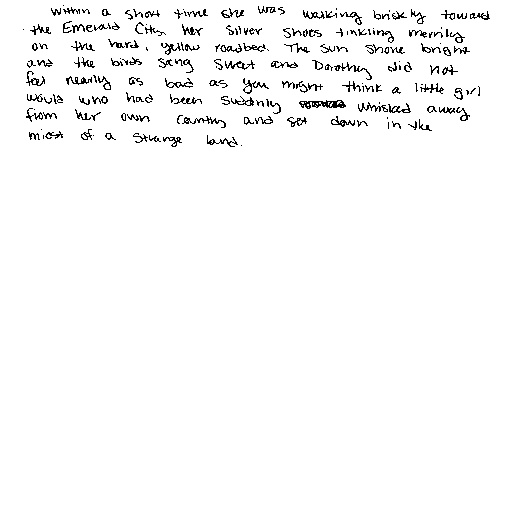 Within a short time she was walking briskly toward
the Emerald City, her Silver Shoes tinkling merrily
on the hard, yellow roadbed. The sun shone bright
and the birds sang sweet and Dorothy did not
feel nearly as bad as you might think a little girl
would who had been suddenly whisked away
from her own country and set down in the
midst of a strange land.